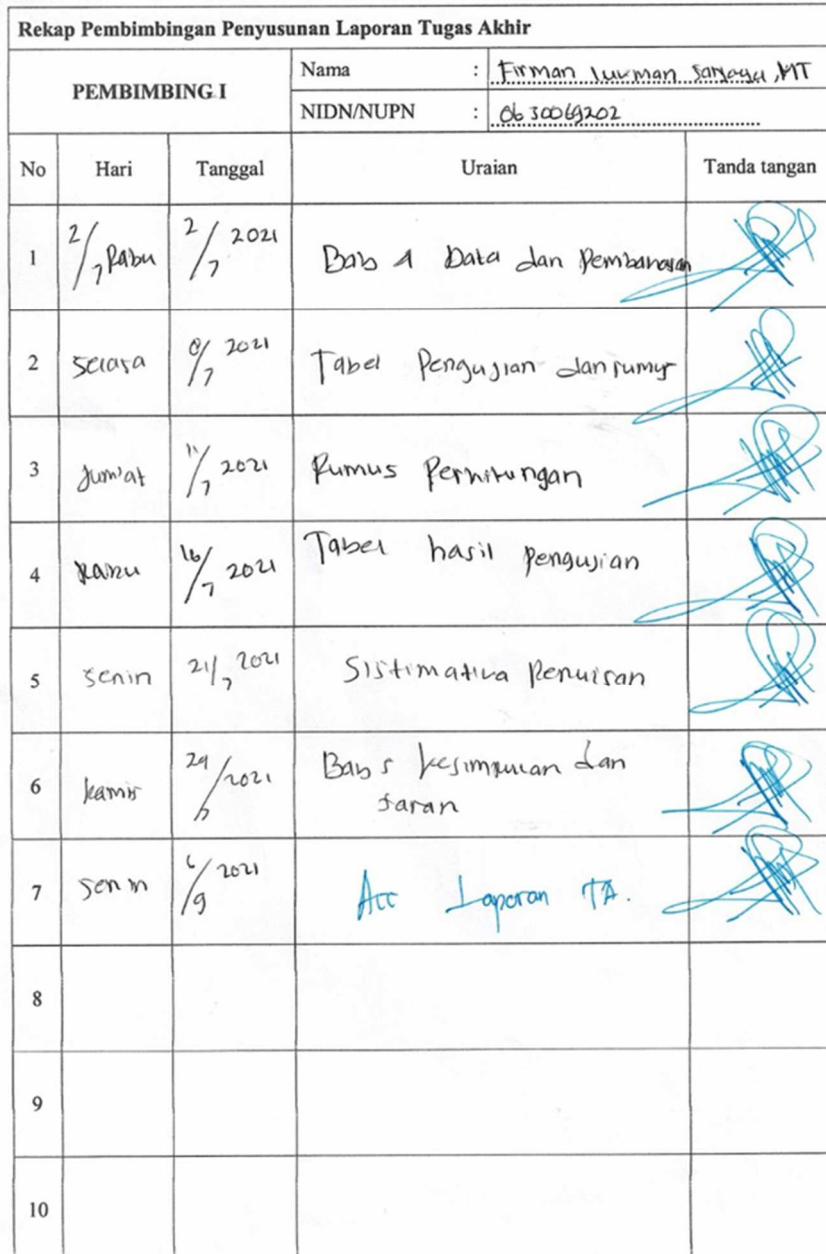 Rekap Pembimbingan Penyusunan Laporan Tugas Akhir
PEMBIMBING I
Nama : Firman Lukman Sanjaya, MT
NIDN/NUPN : 0630069202
No Hari Tanggal Uraian Tanda tangan
1 2/7 Rabu 2/7 2021 Bab 4 Data dan Pembahasan
2 Selasa 8/7 2021 Tabel Pengujian dan rumus
3 Jum'at 11/7 2021 Rumus Perhitungan
4 Rabu 16/7 2021 Tabel hasil pengujian
5 Senin 21/7 2021 Sistimatika Penulisan
6 kamis /2021 Bab 5 kesimpulan dan
saran
7 Senin 6/9 2021 Acc Laporan TA.
8
9
10